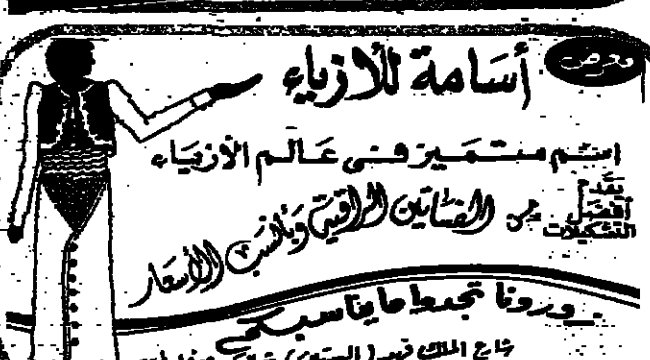 معرض
أسامة للأزياء
اسم متميز في عالم الأزياء
يقدم أفضل التشكيلات
من الفساتين الراقية وبأنسب الأسعار
زورونا تجدوا ما يناسبكم
شارع الملك فهد (الستين)